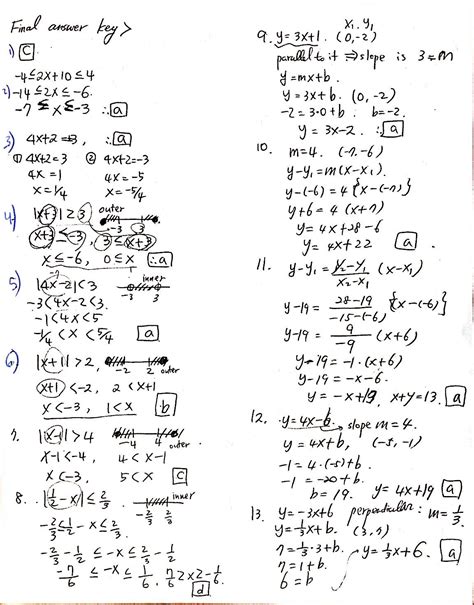 Final answer key>
1) C
-4≤2x+10≤4
2) -14≤2x≤-6.
-7 ≤ x ≤ -3 ∴ a
3) 4x+2=3, ∴ a
① 4x+2=3 ② 4x+2=-3
4x = 1 4x = -5
x = 1/4 x = -5/4
4) |x+3| ≥ 3 outer -3 3
x+3 ≤ -3, 3 ≤ x+3
x ≤ -6, 0 ≤ x ∴ a
5) |4x-2| < 3 inner -3 3
-3 < 4x-2 < 3
-1 < 4x < 5
-1/4 < x < 5/4 a
6) |x+1| > 2, -2 2 outer
x+1 < -2, 2 < x+1
x < -3, 1 < x b
7. |x-1| > 4 -4 4 outer
x-1 < -4, 4 < x-1
x < -3, 5 < x c
8. |1/2 - x| ≤ 2/3. -2/3 2/3 inner
-2/3 ≤ 1/2 - x ≤ 2/3
-2/3 - 1/2 ≤ -x ≤ 2/3 - 1/2
-7/6 ≤ -x ≤ 1/6, 7/6 ≥ x ≥ -1/6
d
x₁, y₁
9. y = 3x+1. (0, -2)
parallel to it ⇒ slope is 3 = m
y = mx+b.
y = 3x+b. (0, -2)
-2 = 3·0+b. b = -2.
y = 3x-2. ∴ a
10. m = 4. (-7, -6)
y-y₁ = m(x-x₁)
y-(-6) = 4{x-(-7)}
y+6 = 4(x+7)
y = 4x+28-6
y = 4x+22 a
11. y-y₁ = y₂-y₁/x₂-x₁ (x-x₁)
y-19 = 28-19/-15-(-6) {x-(-6)}
y-19 = 9/-9 (x+6)
y-19 = -1·(x+6)
y-19 = -x-6.
y = -x+13, x+y=13. a
12. y = 4x-6. slope m = 4.
y = 4x+b, (-5, -1)
-1 = 4·(-5)+b
-1 = -20+b
b = 19. y = 4x+19 a
13. y = -3x+6 perpendicular: m = 1/3.
y = 1/3x+b. (3, 7)
7 = 1/3·3+b.
7 = 1+b. y = 1/3x+6. a
6 = b